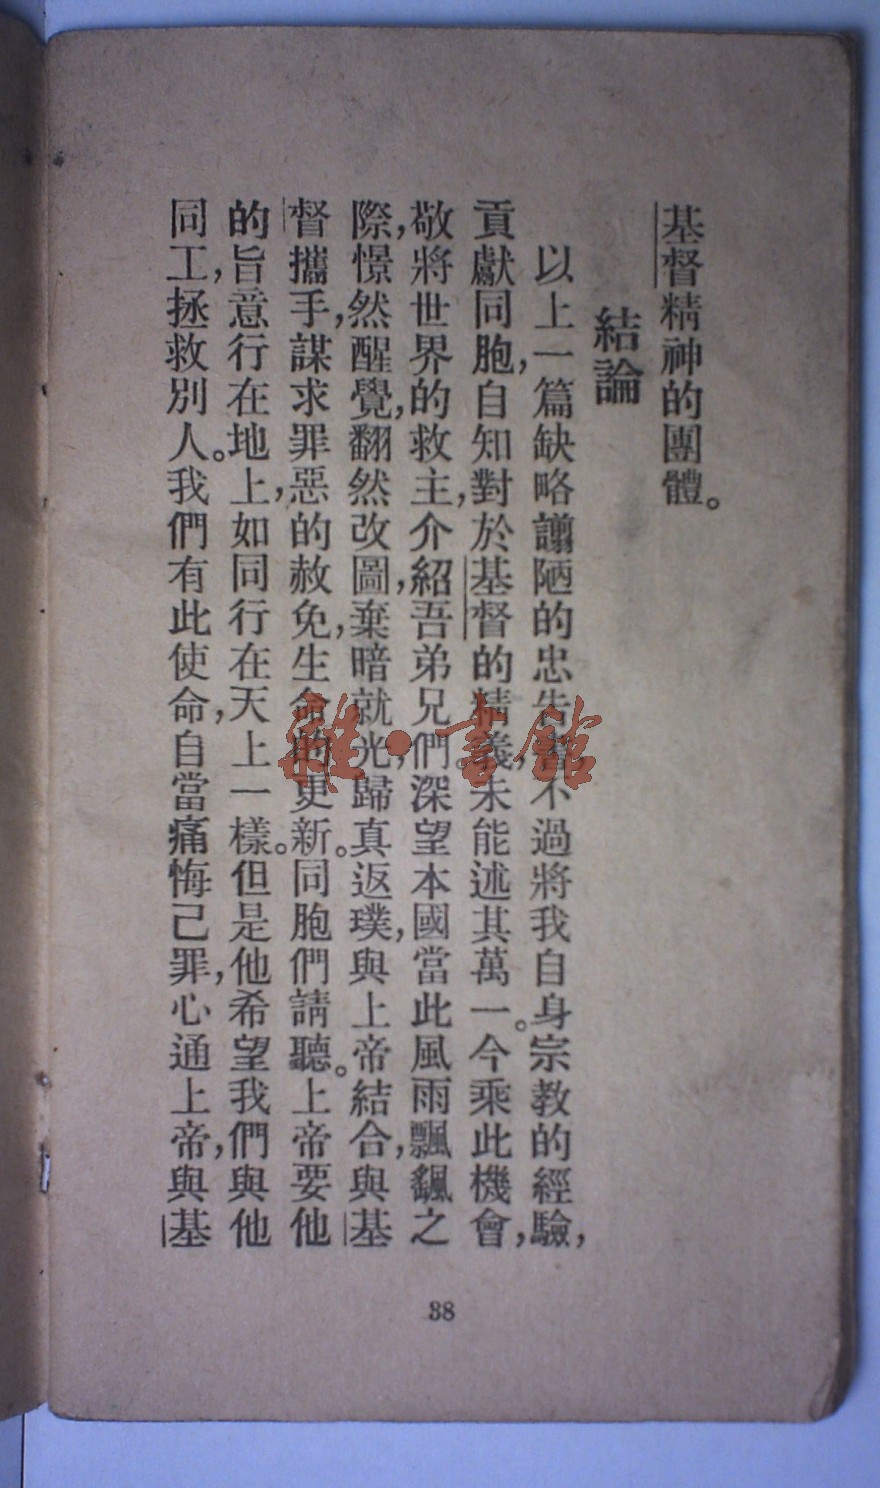 基督精神的團體。
結論
以上一篇缺略謭陋的忠告,不過將我自身宗教的經驗,
貢獻同胞,自知對於基督的精義,未能述其萬一。今乘此機會,
敬將世界的救主,介紹吾弟兄們。深望本國當此風雨飄颻之
際,憬然醒覺,翻然改圖,棄暗就光,歸真返璞,與上帝結合,與基
督攜手,謀求罪惡的赦免,生命的更新。同胞們請聽。上帝要他
的旨意行在地上,如同行在天上一樣。但是他希望我們與他
同工,拯救別人。我們有此使命,自當痛悔己罪,心通上帝,與基
38
雅·書館